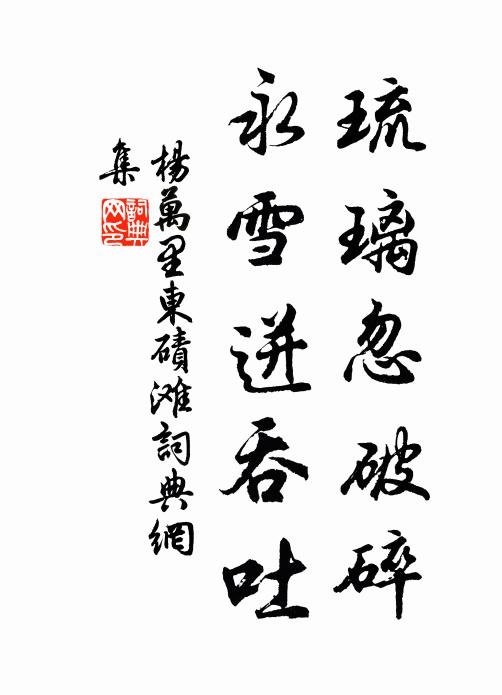 琉璃忽破碎
永雪迸吞吐
楊萬里東磧滩詞典網
集
詞典網印